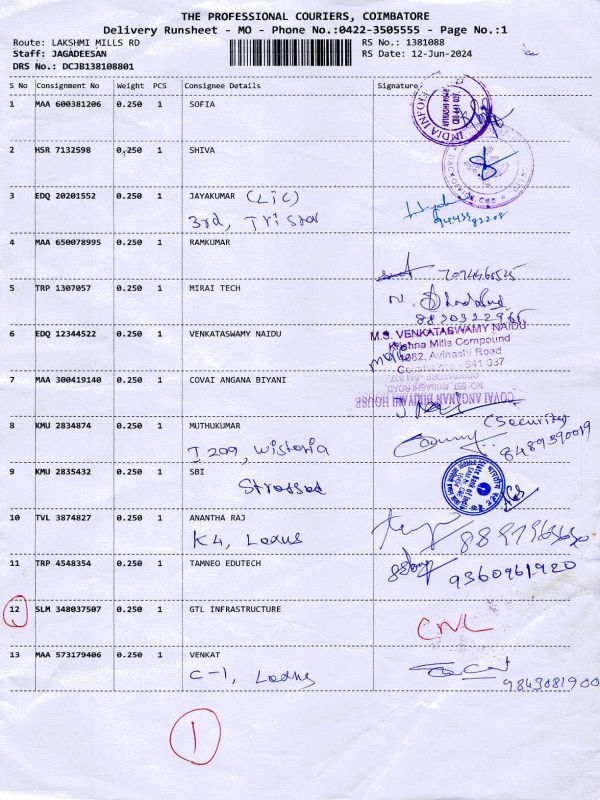 THE PROFESSIONAL COURIERS, COIMBATORE
Delivery Runsheet - MO - Phone No.:0422-3505555 - Page No.:1
Route: LAKSHMI MILLS RD RS No.: 1381088
Staff: JAGADEESAN RS Date: 12-Jun-2024
DRS No.: DCJB138108801
S No Consignment No Weight PCS Consignee Details Signature
1 MAA 600381206 0.250 1 SOFIA
INDIA INFO
2 HSR 7132598 0.250 1 SHIVA
3 EDQ 20201552 0.250 1 JAYAKUMAR (LIC)
3rd, Tristar
4 MAA 650078995 0.250 1 RAMKUMAR
5 TRP 1307057 0.250 1 MIRAI TECH
8820322965
6 EDQ 12344522 0.250 1 VENKATASWAMY NAIDU
M.S. VENKATASWAMY NAIDU
Krishna Mills Compound
1082, Avinashi Road
Coimbatore - 641 037
7 MAA 300419140 0.250 1 COVAI ANGANA BIYANI
COVAI ANGANAN BIRIYANI HOUSE
8 KMU 2834874 0.250 1 MUTHUKUMAR (Security)
J 209, Wistoria 8489390019
9 KMU 2835432 0.250 1 SBI
Strossed
10 TVL 3874827 0.250 1 ANANTHA RAJ
K4, Lodus
11 TRP 4548354 0.250 1 TAMNEO EDUTECH
9360961920
12 SLM 348037507 0.250 1 GTL INFRASTRUCTURE
CNL
13 MAA 573179406 0.250 1 VENKAT
C-1, Lodus 9843081900
1